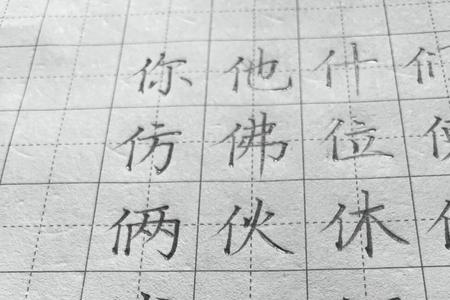 你他什
仿佛位
俩伙休